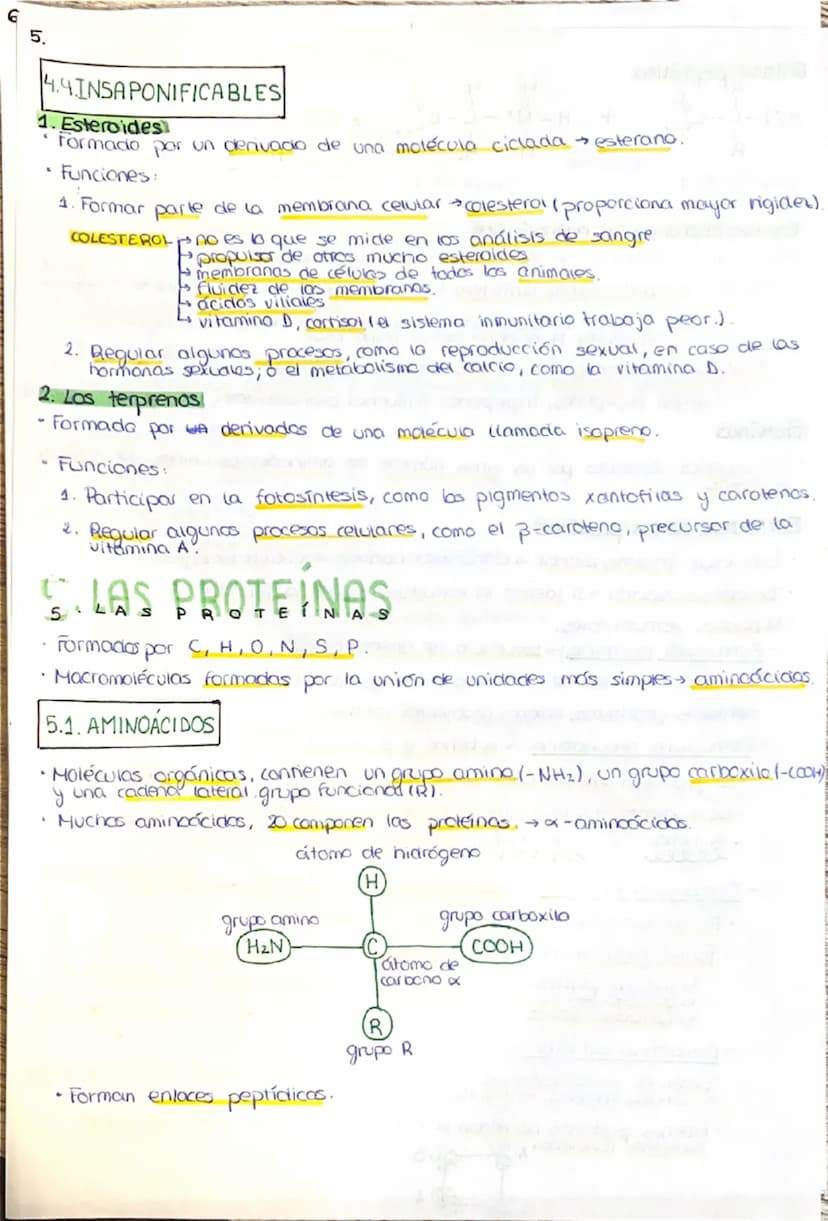 6
5.
4.4.INSAPONIFICABLES
1. Esteroides
· Formado por un derivado de una molécula ciclada → esterano.
· Funciones:
1. Formar parte de la membrana celular → colesterol (proporciona mayor rigidez).
COLESTEROL → no es lo que se mide en los análisis de sangre
→ propulsor de otros mucho esteroides
→ membranas de células de todos los animales.
→ fluidez de las membranas.
→ ácidos viliales
→ vitamina D, cortisol (el sistema inmunitario trabaja peor.).
2. Regular algunos procesos, como la reproducción sexual, en caso de las
hormonas sexuales; o el metabolismo del calcio, como la vitamina D.
2. Los terprenos
- Formado por derivados de una molécula llamada isopreno.
- Funciones:
1. Participar en la fotosíntesis, como los pigmentos xantofilas y carotenos.
2. Regular algunos procesos celulares, como el β-caroteno, precursor de la
vitamina A.
LAS PROTEÍNAS
5. LAS PROTEÍNAS
· Formados por C, H, O, N, S, P.
· Macromoléculas formadas por la unión de unidades más simples → aminoácidos.
5.1. AMINOÁCIDOS
· Moléculas orgánicas, contienen un grupo amino (-NH2), un grupo carboxilo (-COOH)
y una cadena lateral. grupo funcional (R).
· Muchos aminoácidos, 20 componen las proteínas. → α-aminoácidos.
átomo de hidrógeno
H
grupo amino grupo carboxilo
H2N C COOH
átomo de
carbono α
R
grupo R
· Forman enlaces peptídicos.